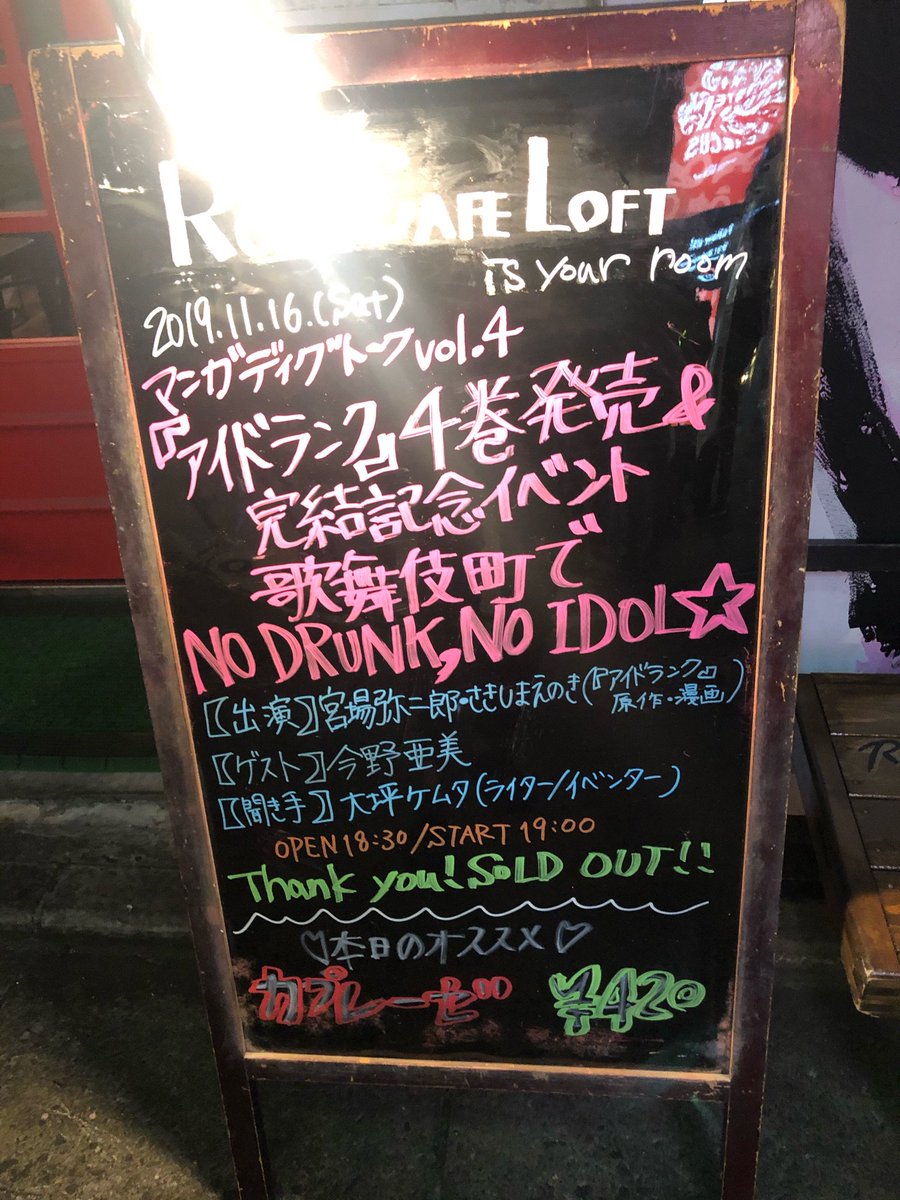 CAFE LOFT
is your room
2019.11.16.(Sat)
マンガディグトーク vol.4
『アイドランク』4巻発売&
完結記念イベント
歌舞伎町で
NO DRUNK, NO IDOL☆
【出演】宮場弥二郎・さきしまえのき(『アイドランク』
原作・漫画)
【ゲスト】今野亜美
【聞き手】大坪ケムタ(ライター/イベンター)
OPEN 18:30/START 19:00
Thank you! SOLD OUT!!
♡本日のオススメ♡
カプレーゼ ¥420